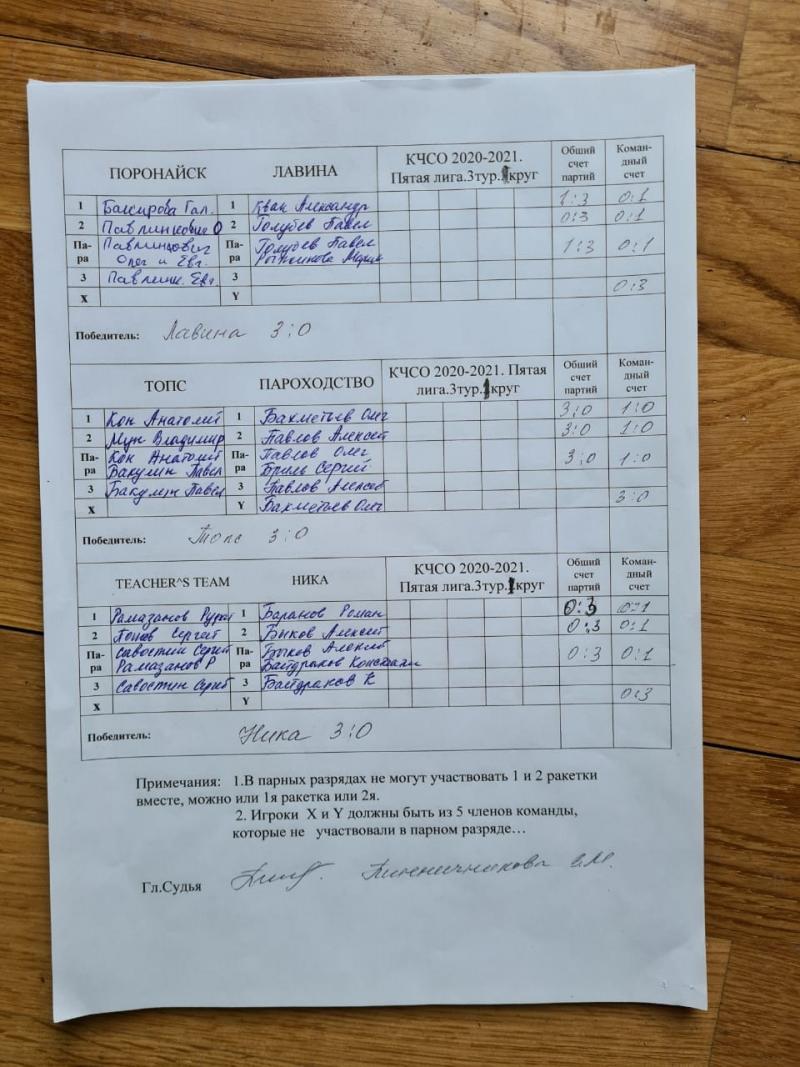 ПОРОНАЙСК ЛАВИНА КЧСО 2020-2021. Пятая лига.3тур.1круг Общий счет партий Коман-дный счет
1 Гал. 1 Кван Александр 1:3 0:1
2 Павлинцович О 2 Голубев Павел 0:3 0:1
Па-ра Павлинцович Олег и Евг. Па-ра Голубев Павел Мария 1:3 0:1
3 Павлинц. Евг. 3
X Y 0:3
Победитель: Лавина 3:0
ТОПС ПАРОХОДСТВО КЧСО 2020-2021. Пятая лига.3тур.1круг Общий счет партий Коман-дный счет
1 Кон Анатолий 1 Бахметьев Олег 3:0 1:0
2 Мун Владимир 2 Павлов Алексей 3:0 1:0
Па-ра Кон Анатолий Бакулин Павел Па-ра Павлов Олег Бриль Сергей 3:0 1:0
3 Бакулин Павел 3 Павлов Алексей
X Y Бахметьев Олег 3:0
Победитель: Топс 3:0
TEACHER^S TEAM НИКА КЧСО 2020-2021. Пятая лига.3тур.1круг Общий счет партий Коман-дный счет
1 Рамазанов 1 Баранов Роман 0:3 0:1
2 Попов Сергей 2 Быков Алексей 0:3 0:1
Па-ра Савостин Сергей Рамазанов Р Па-ра Быков Алексей Байдраков Константин 0:3 0:1
3 Савостин Сергей 3 Байдраков К
X Y 0:3
Победитель: Ника 3:0
Примечания: 1.В парных разрядах не могут участвовать 1 и 2 ракетки
вместе, можно или 1я ракетка или 2я.
2. Игроки X и Y должны быть из 5 членов команды,
которые не участвовали в парном разряде…
Гл.Судья